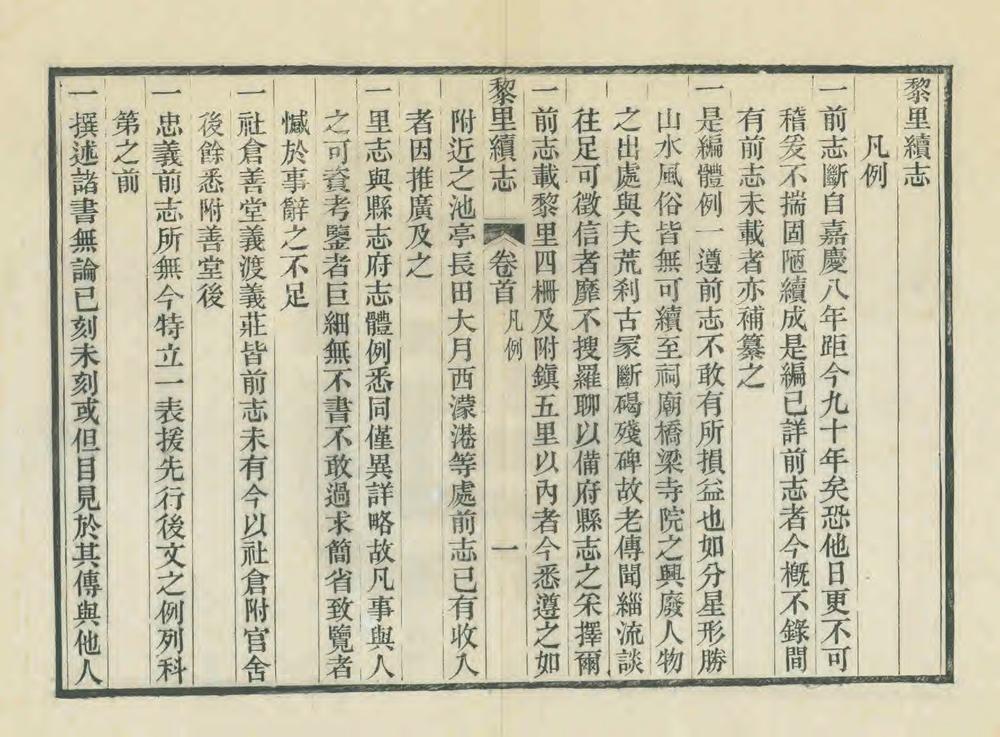 黎里續志
凡例
一前志斷自嘉慶八年距今九十年矣恐他日更不可
稽爰不揣固陋續成是編已詳前志者今槪不錄間
有前志未載者亦補纂之
一是編體例一遵前志不敢有所損益也如分星形勝
山水風俗皆無可續至祠廟橋梁寺院之興廢人物
之出處與夫荒刹古冡斷碣殘碑故老傳聞緇流談
往足可徵信者靡不搜羅聊以備府縣志之采擇爾
一前志載黎里四柵及附鎭五里以內者今悉遵之如
黎里續志
卷首
凡例
一
附近之池亭長田大月西濛港等處前志已有收入
者因推廣及之
一里志與縣志府志體例悉同僅異詳略故凡事與人
之可資考鑒者巨細無不書不敢過求簡省致覽者
憾於事辭之不足
一社倉善堂義渡義莊皆前志未有今以社倉附官舍
後餘悉附善堂後
一忠義前志所無今特立一表援先行後文之例列科
第之前
一撰述諸書無論已刻未刻或但目見於其傳與他人